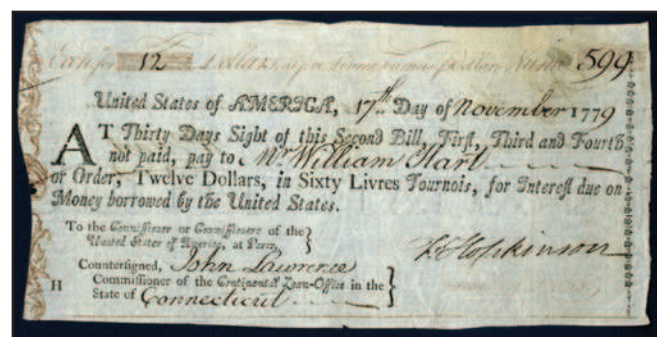 Exch. for 12 Dollars, at five Livres Tournois Dollar, Num. 599
United States of AMERICA, 17th Day of November 1779
AT Thirty Days Sight of this Second Bill, First, Third and Fourth
not paid, pay to Mr William Hart
or Order, Twelve Dollars, in Sixty Livres Tournois, for Interest due on
Money borrowed by the United States.
To the Commissioner or Commissioners of the
United States of America, at Paris,
F. Hopkinson
Countersigned, John Lawrence
H Commissioner of the Continental Loan-Office in the
State of Connecticut